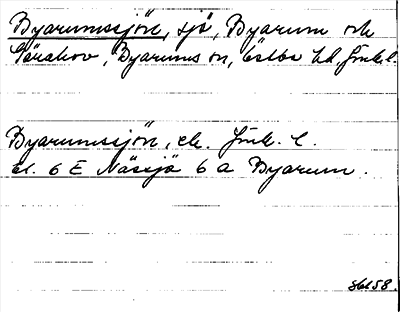 Byarumssjön, sjö, Byarum och
Tofteryds snr, Östbo hd, Jönk. l.
Byarumssjön, ek. Jönk. l.
bl. 6 E Nässjö 6 a Byarum.
58.